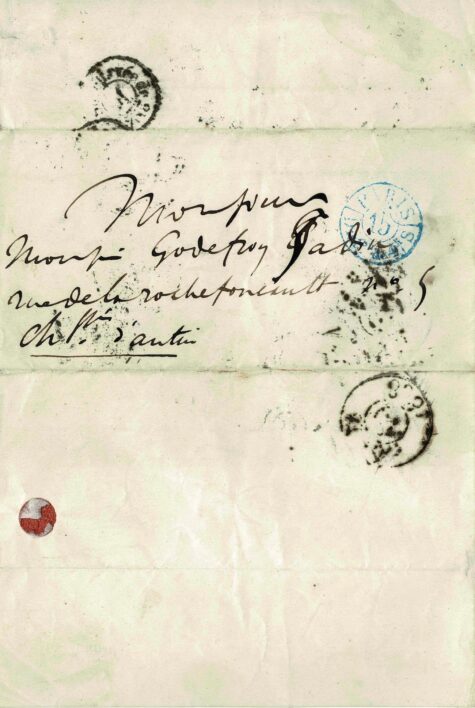 Monsieur
Monsieur Godefroy Jadin
rue de la rochefoucault nº 5
chée d'antin
PARIS
10